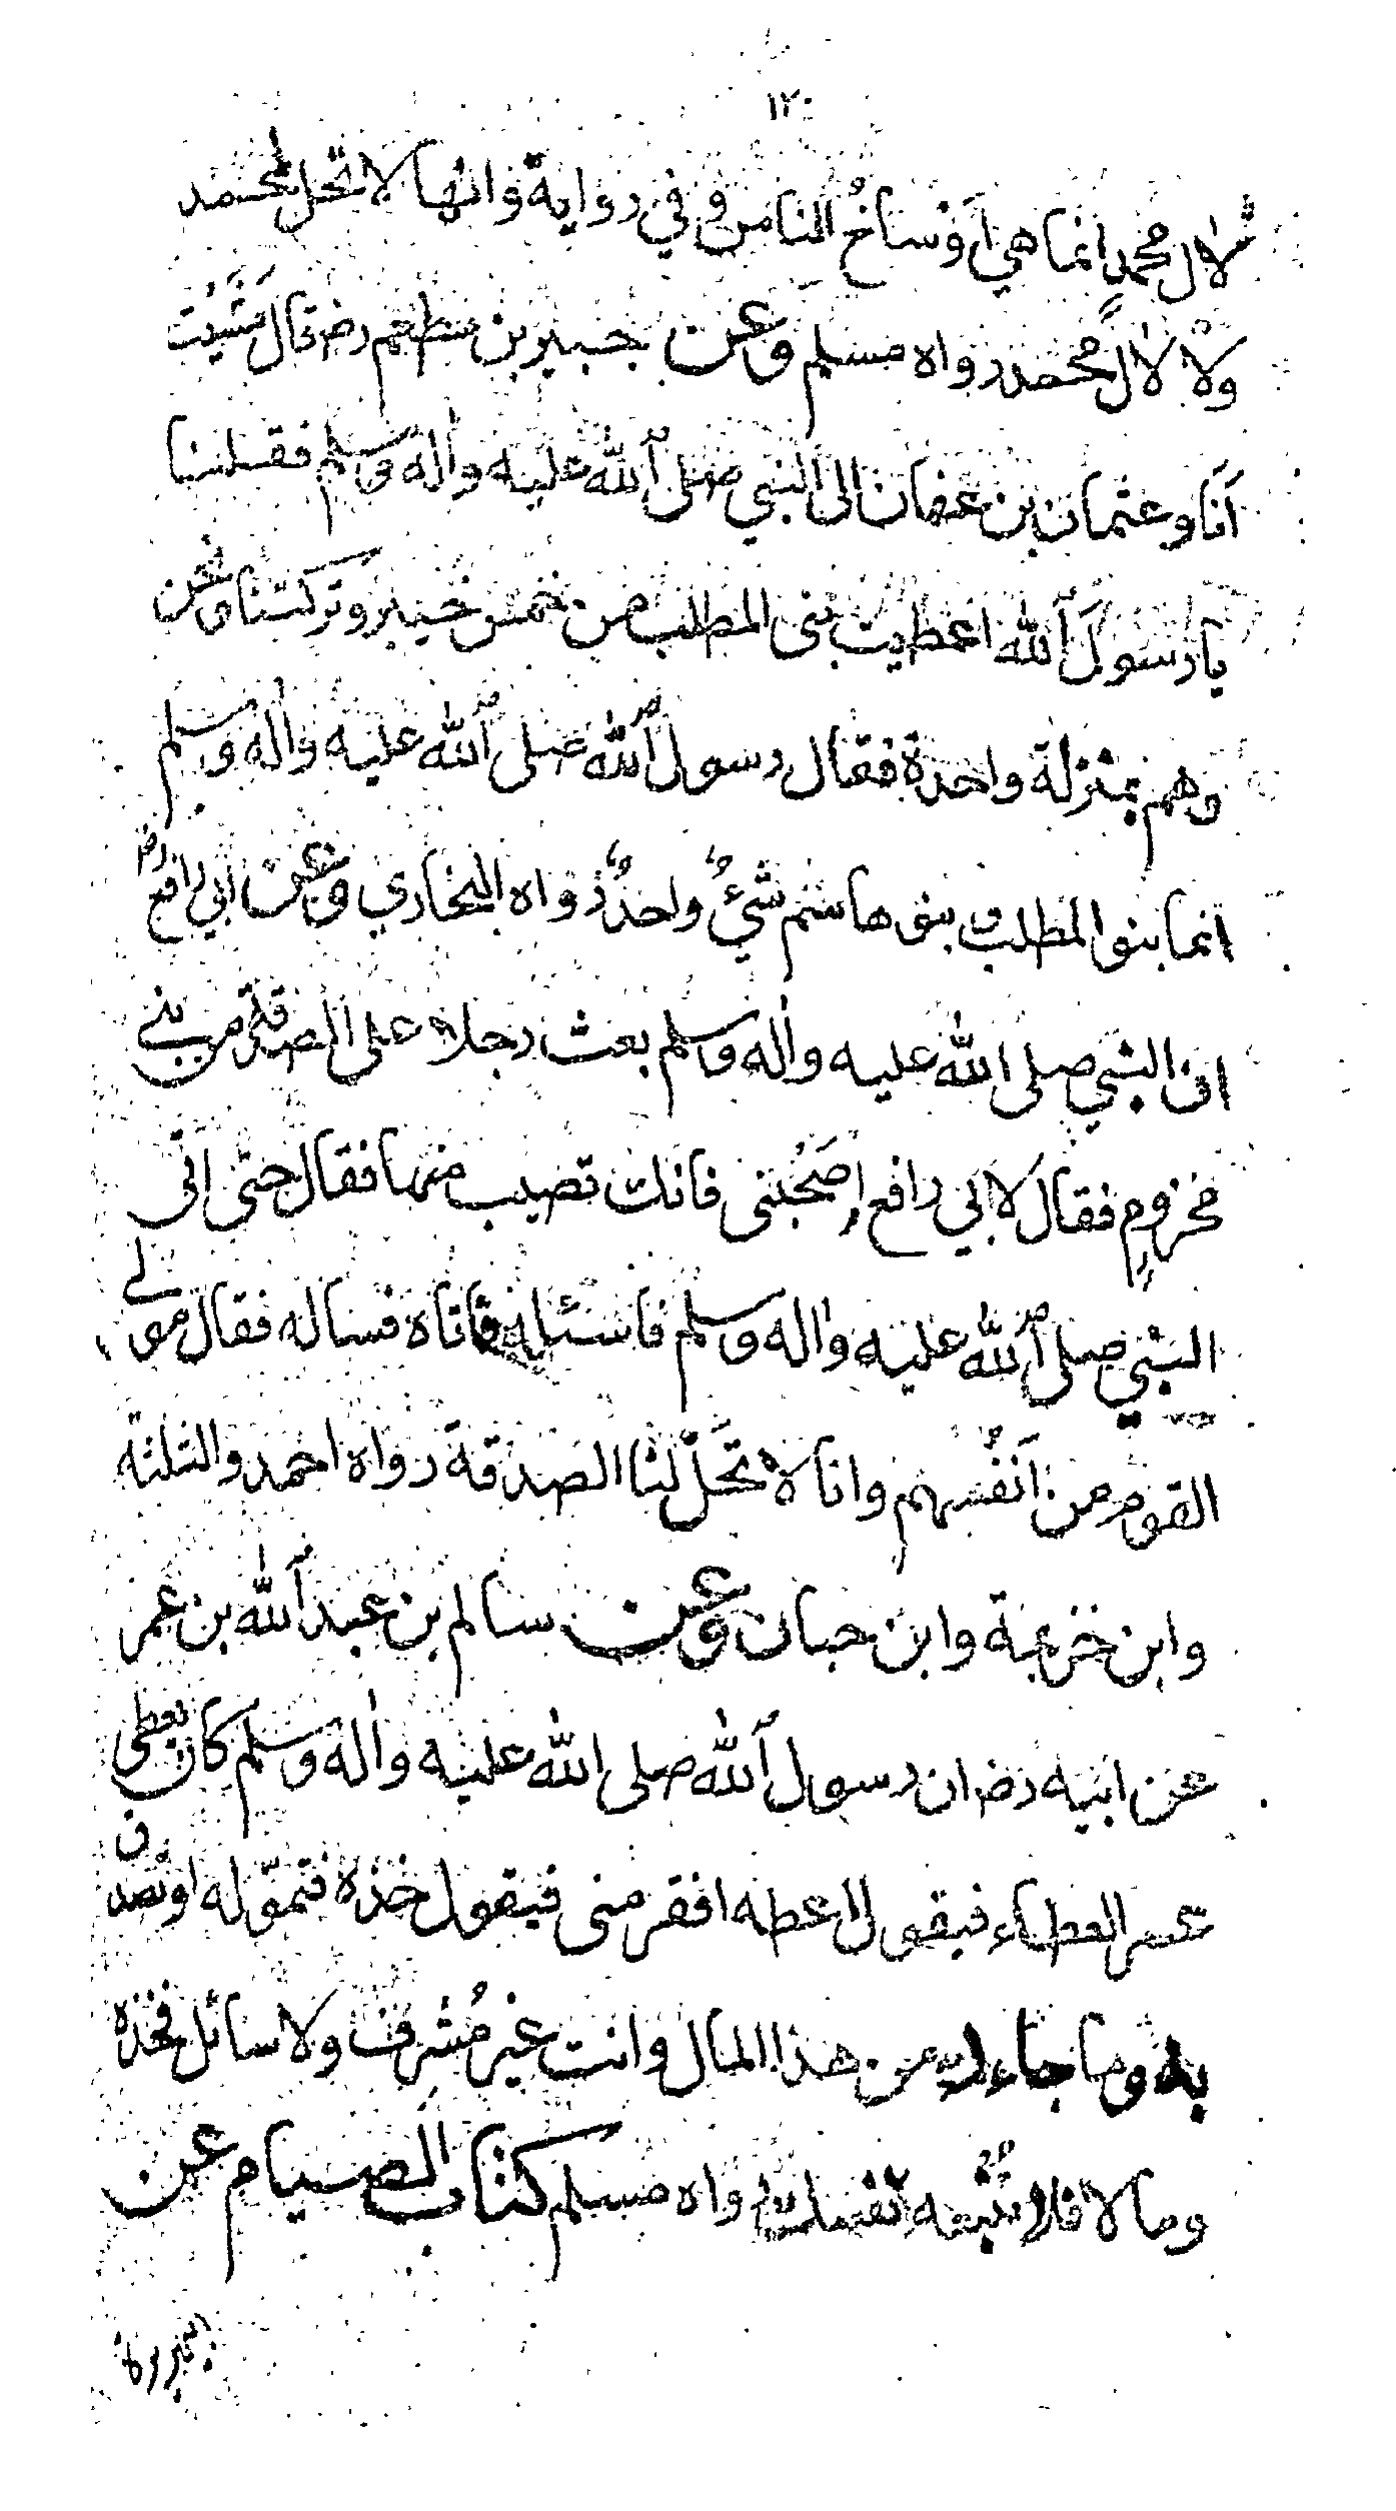 ١٢٠
لال محمد انما هي اَوْساخُ الناس و في رواية وانها لا تحل لمحمد
ولا لاٰل محمد رواه مسلم وعن جبير بن مطعم رض قال مَشَيْت
اَنا وعثمان بن عفان الى النبي صلى ٱلله عليه واٰله وسلم فقلنا
يا رسولَ ٱلله اعطيت بنى المطلب من خمس خيبر وتركتنا ونحن
وهم بمنزلة واحدة فقال رسول ٱلله صلى ٱلله عليه واٰله وسلم
انما بنو المطلب و بنو هاشم شيءٌ واحدٌ رواه البخاري وعن ابي رافع رض
ان النبي صلى الله عليه واٰله وسلم بعث رجلا على الصدقة من بني
مخزومٍ فقال لابي رافع اِصحَبْنى فانك تصيب منها فقال حتى اتى
النبي صلى ٱلله عليه واٰله وسلم فاسئله فاتاه فساله فقال مولى
القوم من اَنفُسهم وانا لا تحَلّ لنا الصدقة رواه احمد والثلثة
وابن خزيمة وابن حبان وعن سالم بن عبد ٱلله بن عمر
عن ابيه رض ان رسول ٱلله صلى الله عليه واٰله وسلم كان يعطى
عمر العطاء فيقول اعطه افقر منى فيقول خذه فتموّله او تصدق
به وما جاءك من هذا المال وانت غير مُشرف ولا سائل فخذه
وما لا فلا تُتْبعه نفسك رواه مسلم كتاب الصيام عن